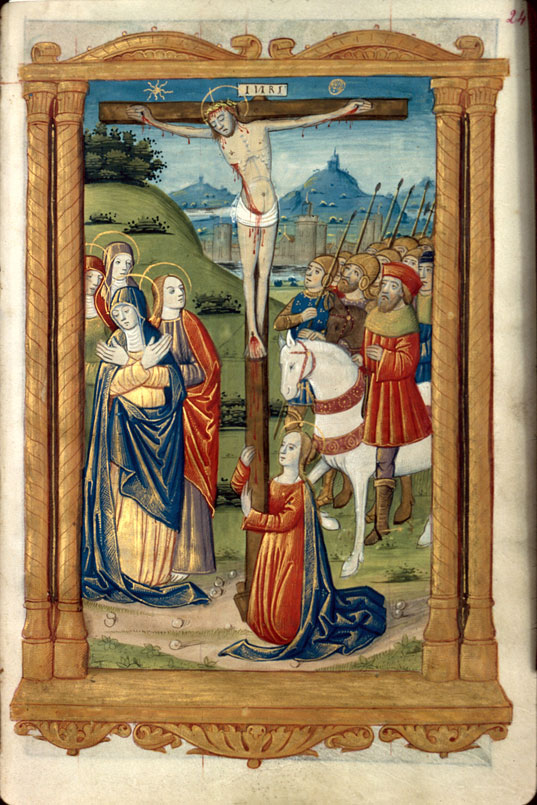 24
INRI